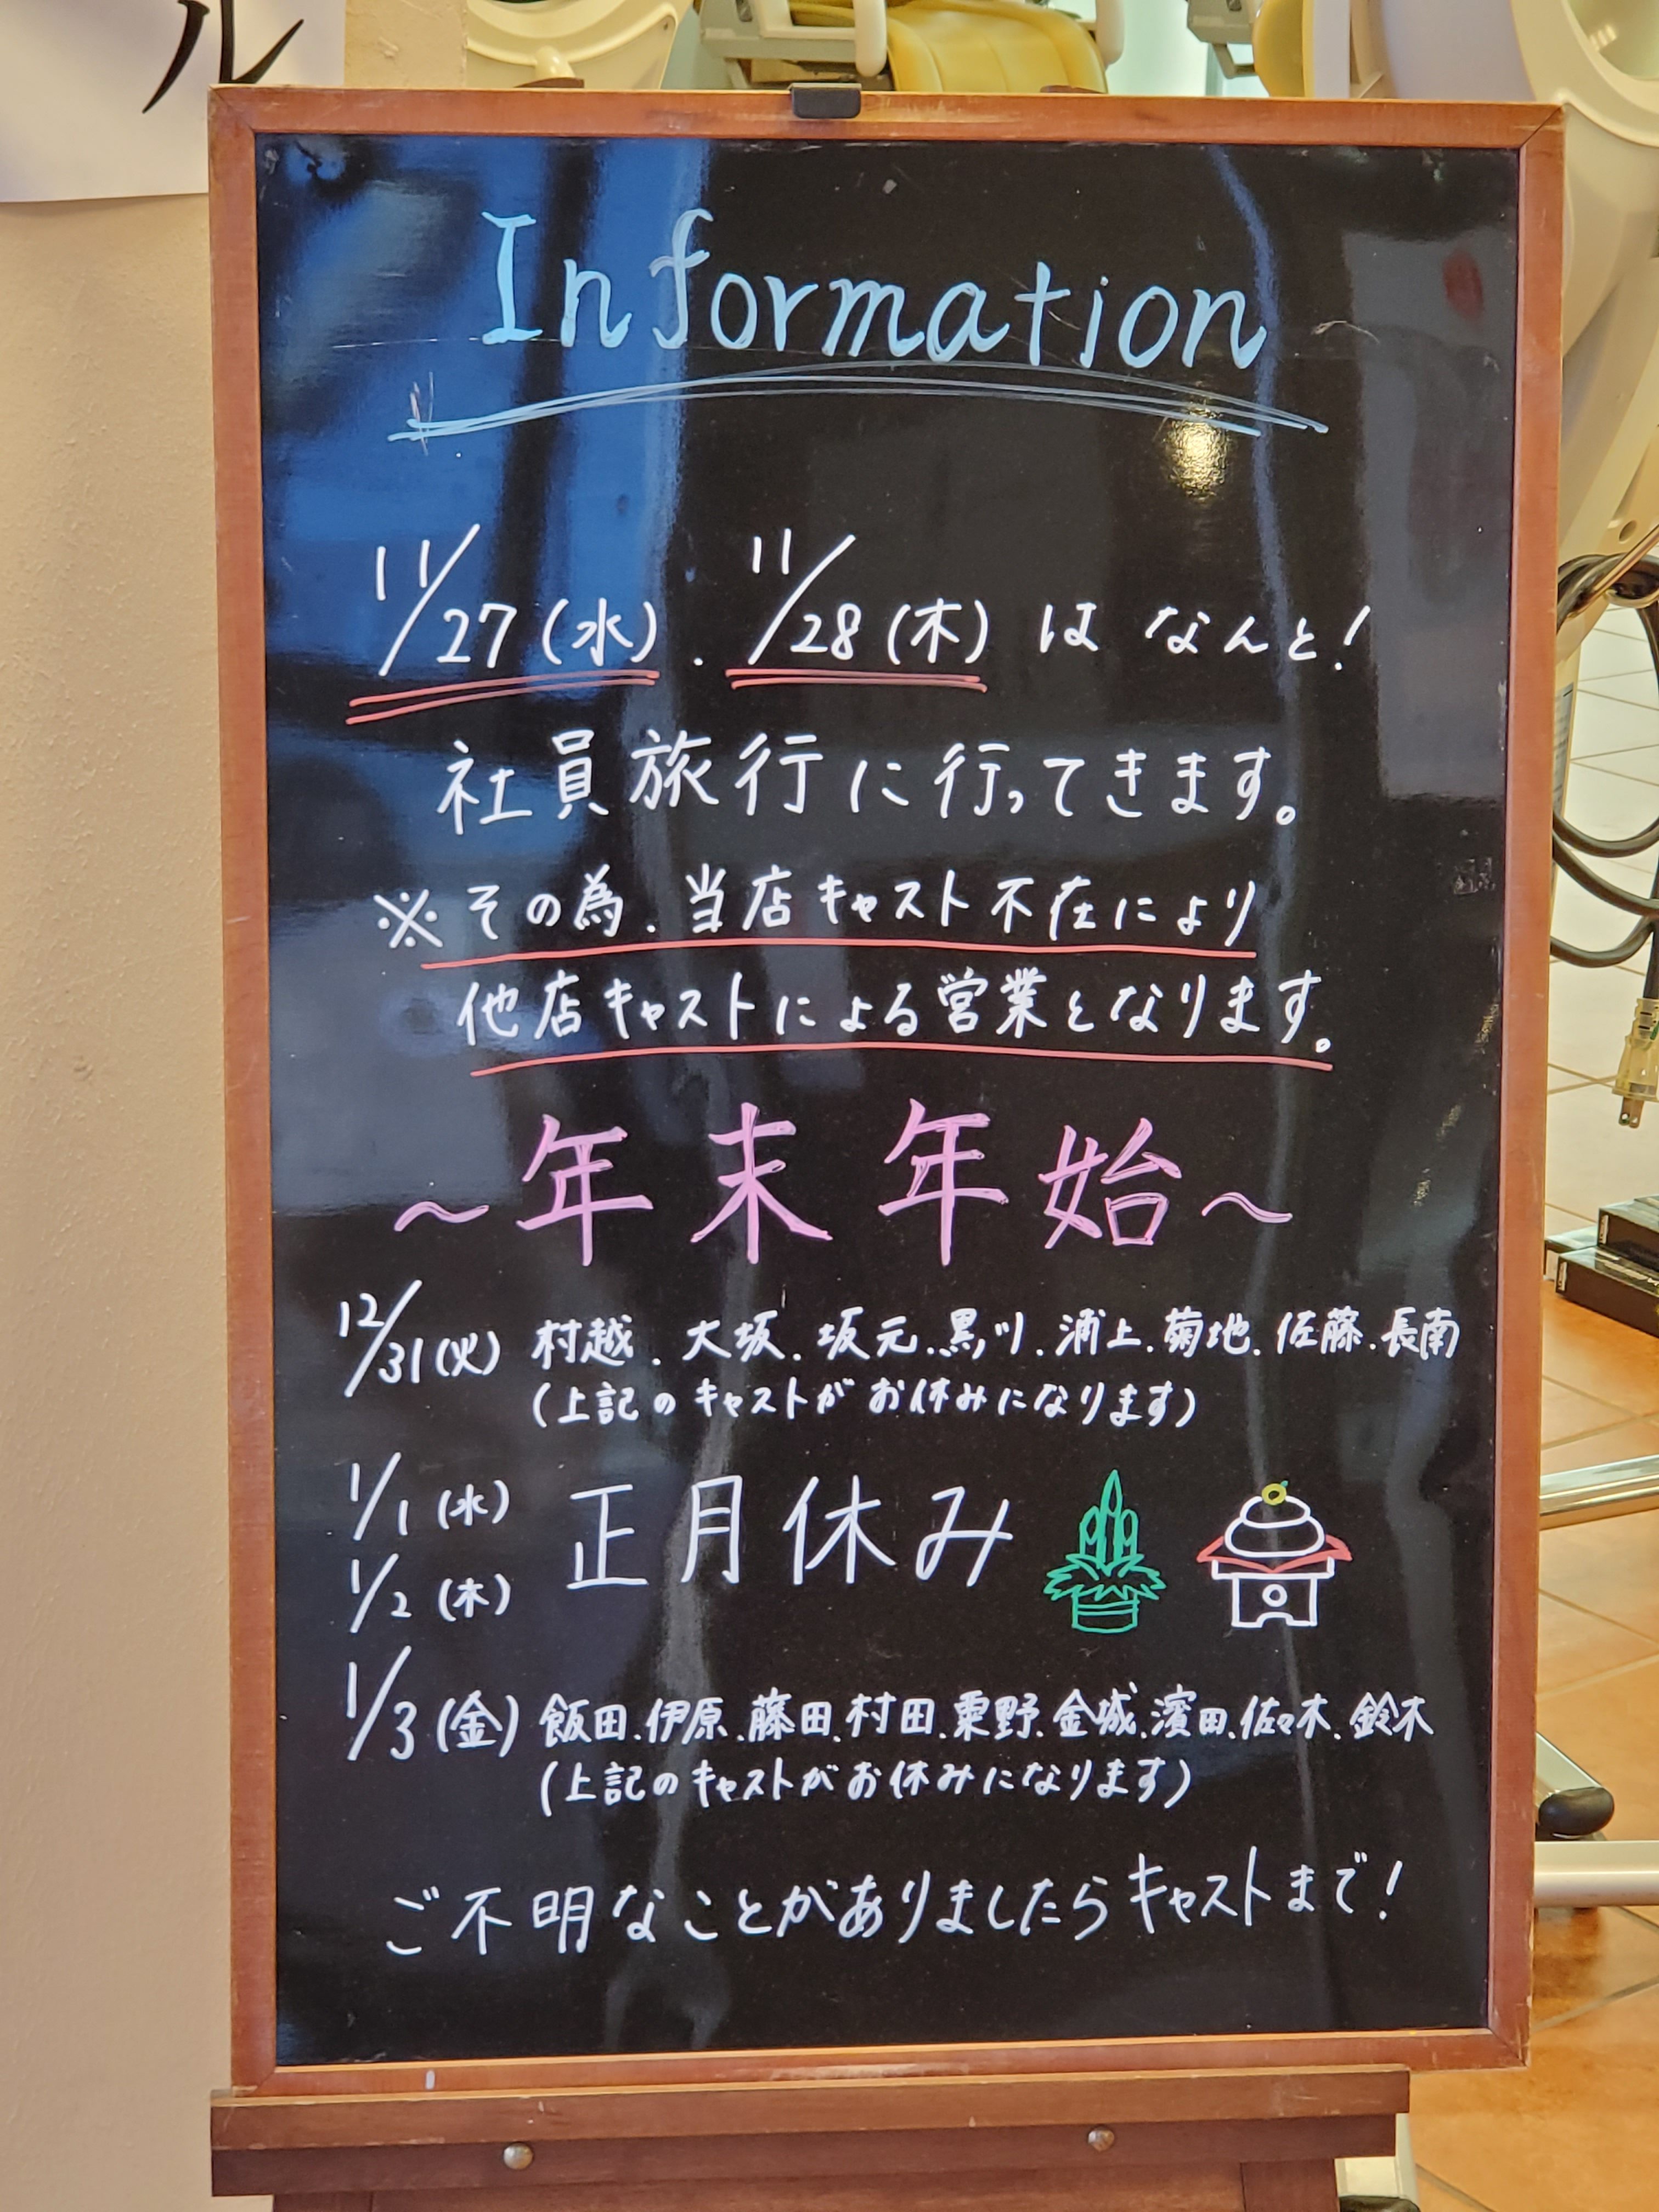 ル
Information
11/27(水)．11/28(木)はなんと!
社員旅行に行ってきます。
※その為．当店キャスト不在により
他店キャストによる営業となります。
～年末年始～
12/31(火) 村越．大坂．坂元．黒川．浦上．菊地．佐藤．長南
(上記のキャストがお休みになります)
1/1(水) 正月休み
1/2(木)
1/3(金) 飯田．伊原．藤田．村田．粟野．金城．濱田．佐々木．鈴木
(上記のキャストがお休みになります)
ご不明なことがありましたらキャストまで!